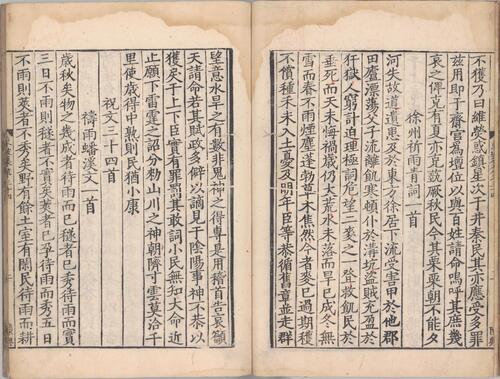 不獲乃曰維熒惑鎮星次于井秦民其亦應受多罪
茲用即于齋宮為壇位以與百姓請命嗚呼其庶幾
哀之俾克有夏亦克茲厥秋民今其栗栗朝不能夕
徐州祈雨青詞一首
河失故道遺患及於東方徐居下流受害甲於他郡
田廬漂蕩父子流離飢寒頓仆於溝坑盜賊充盈於
犴獄人窮計迫理極詞危望二麥之一登救飢民於
垂死而天未悔禍歲仍大荒水未落而旱已成冬無
雪而春不雨煙塵蓬勃草木焦然今者麥已過期穫
不償種禾未入土憂及明年臣等恭循舊章並走群
望意水旱之有數非鬼神之得專是用稽首告哀籲
天請命若其賦政多僻以謫見于陰陽事神不恭以
獲戾于上下臣實有罪罰其敢詞小民無知大命近
止願下雷霆之詔分勑山川之神朝隮寸雲莫洽千
里使歲得中熟則民猶小康
祝文三十四首
禱雨蟠溪文一首
歲秋矣物之幾成者待雨而已穟者已秀待雨而實
三日不雨則穟者不實矣荄者已孕待雨而秀五日
不雨則荄者不秀矣野有餘土室有閒民待雨而耕